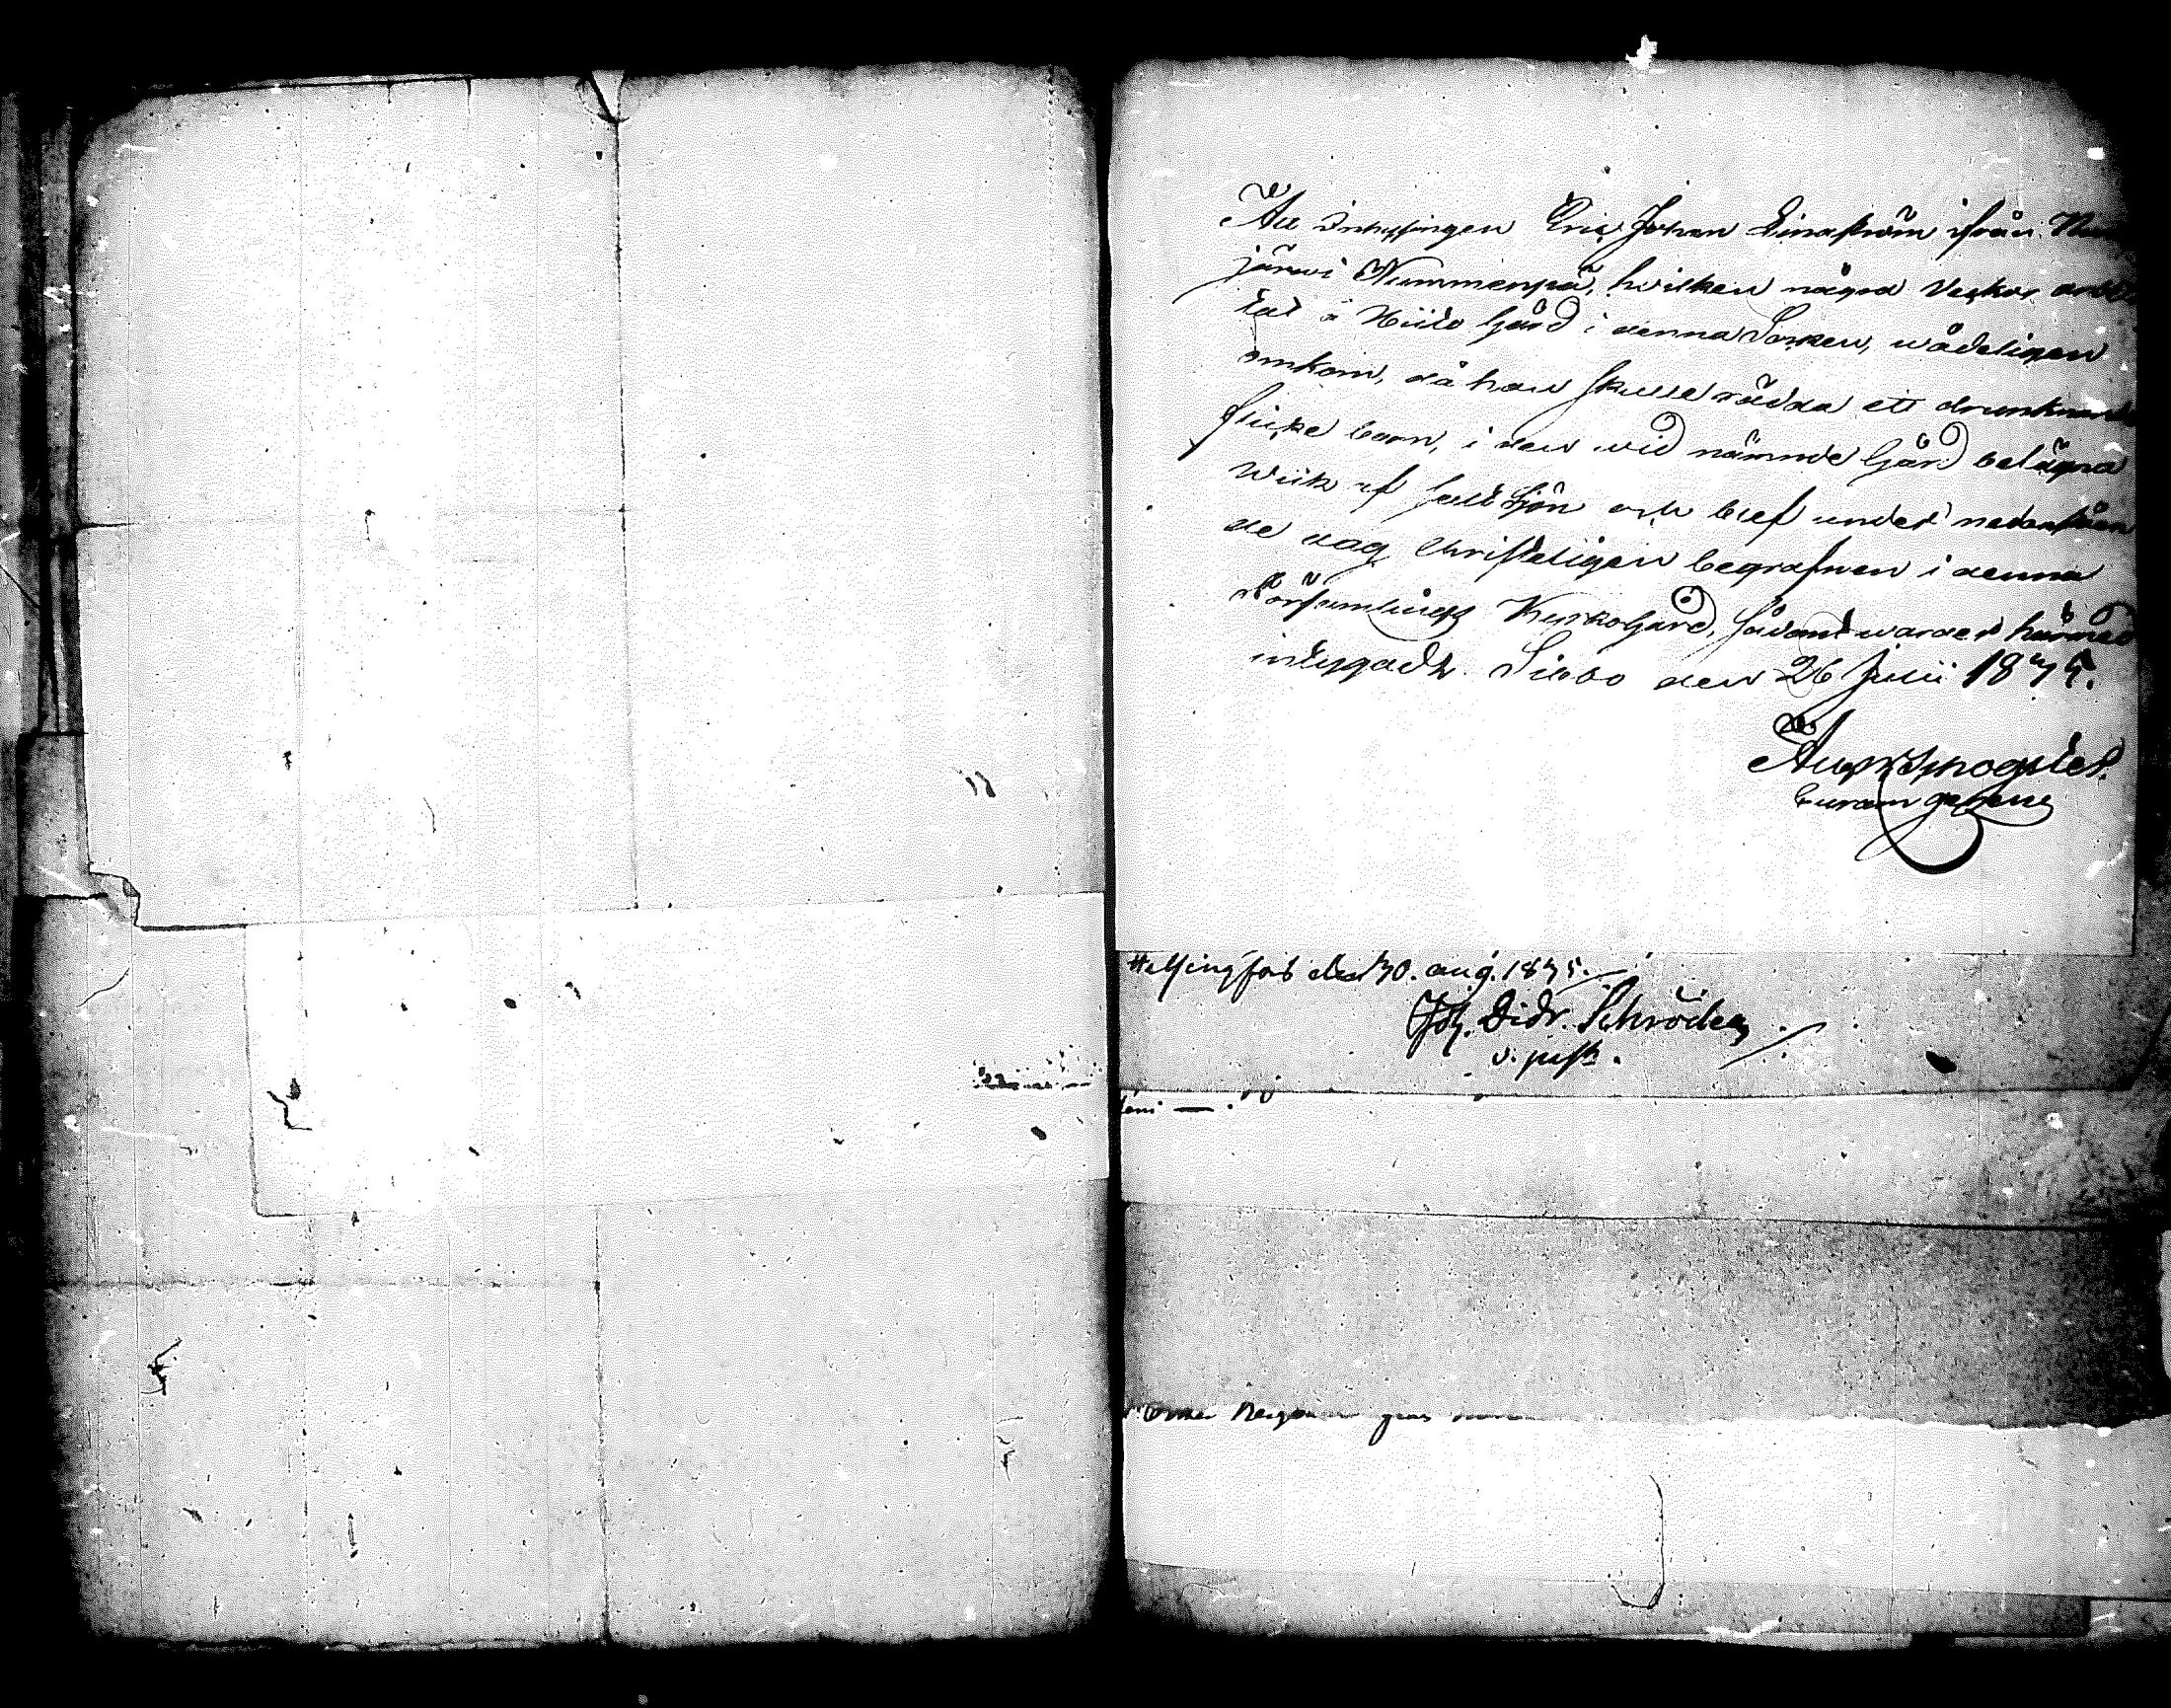 At Inhysingen Eric Johan Linaström ifrån
järwi Nummenpä, hvilken några veckor
tat å Hiito Gård i denna Socken, wådeligen
omkom, då han skulle rädda ett drunknande
flicke barn, i den wid nämnde Gård belägna
wiik af salt sjön och blef under nedanståen
de dag Christeligen begrafwen i denna
Församlings Kyrkogård, sådant warder härmed
intygadt. Sibbo den 26 Julii 1835.
curam gerens
Helsingfors den 30. aug. 1835.
Joh. Didr. Schröder
v. past.